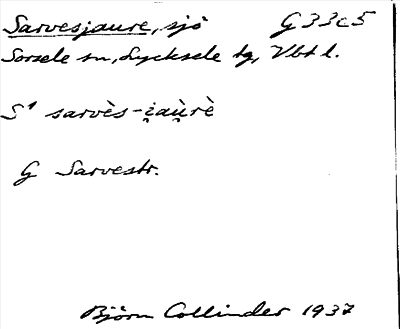 Sarvesjaure, sjö G 33c5
Sorsele sn, Lycksele tg, Vbt l.
S¹ sarvès-i̯au̯rè
G Sarvestr.
Björn Collinder 1937